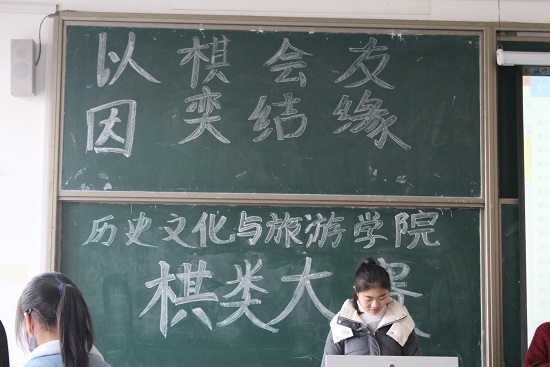 以棋会友
因奕结缘
历史文化与旅游学院
棋类大赛